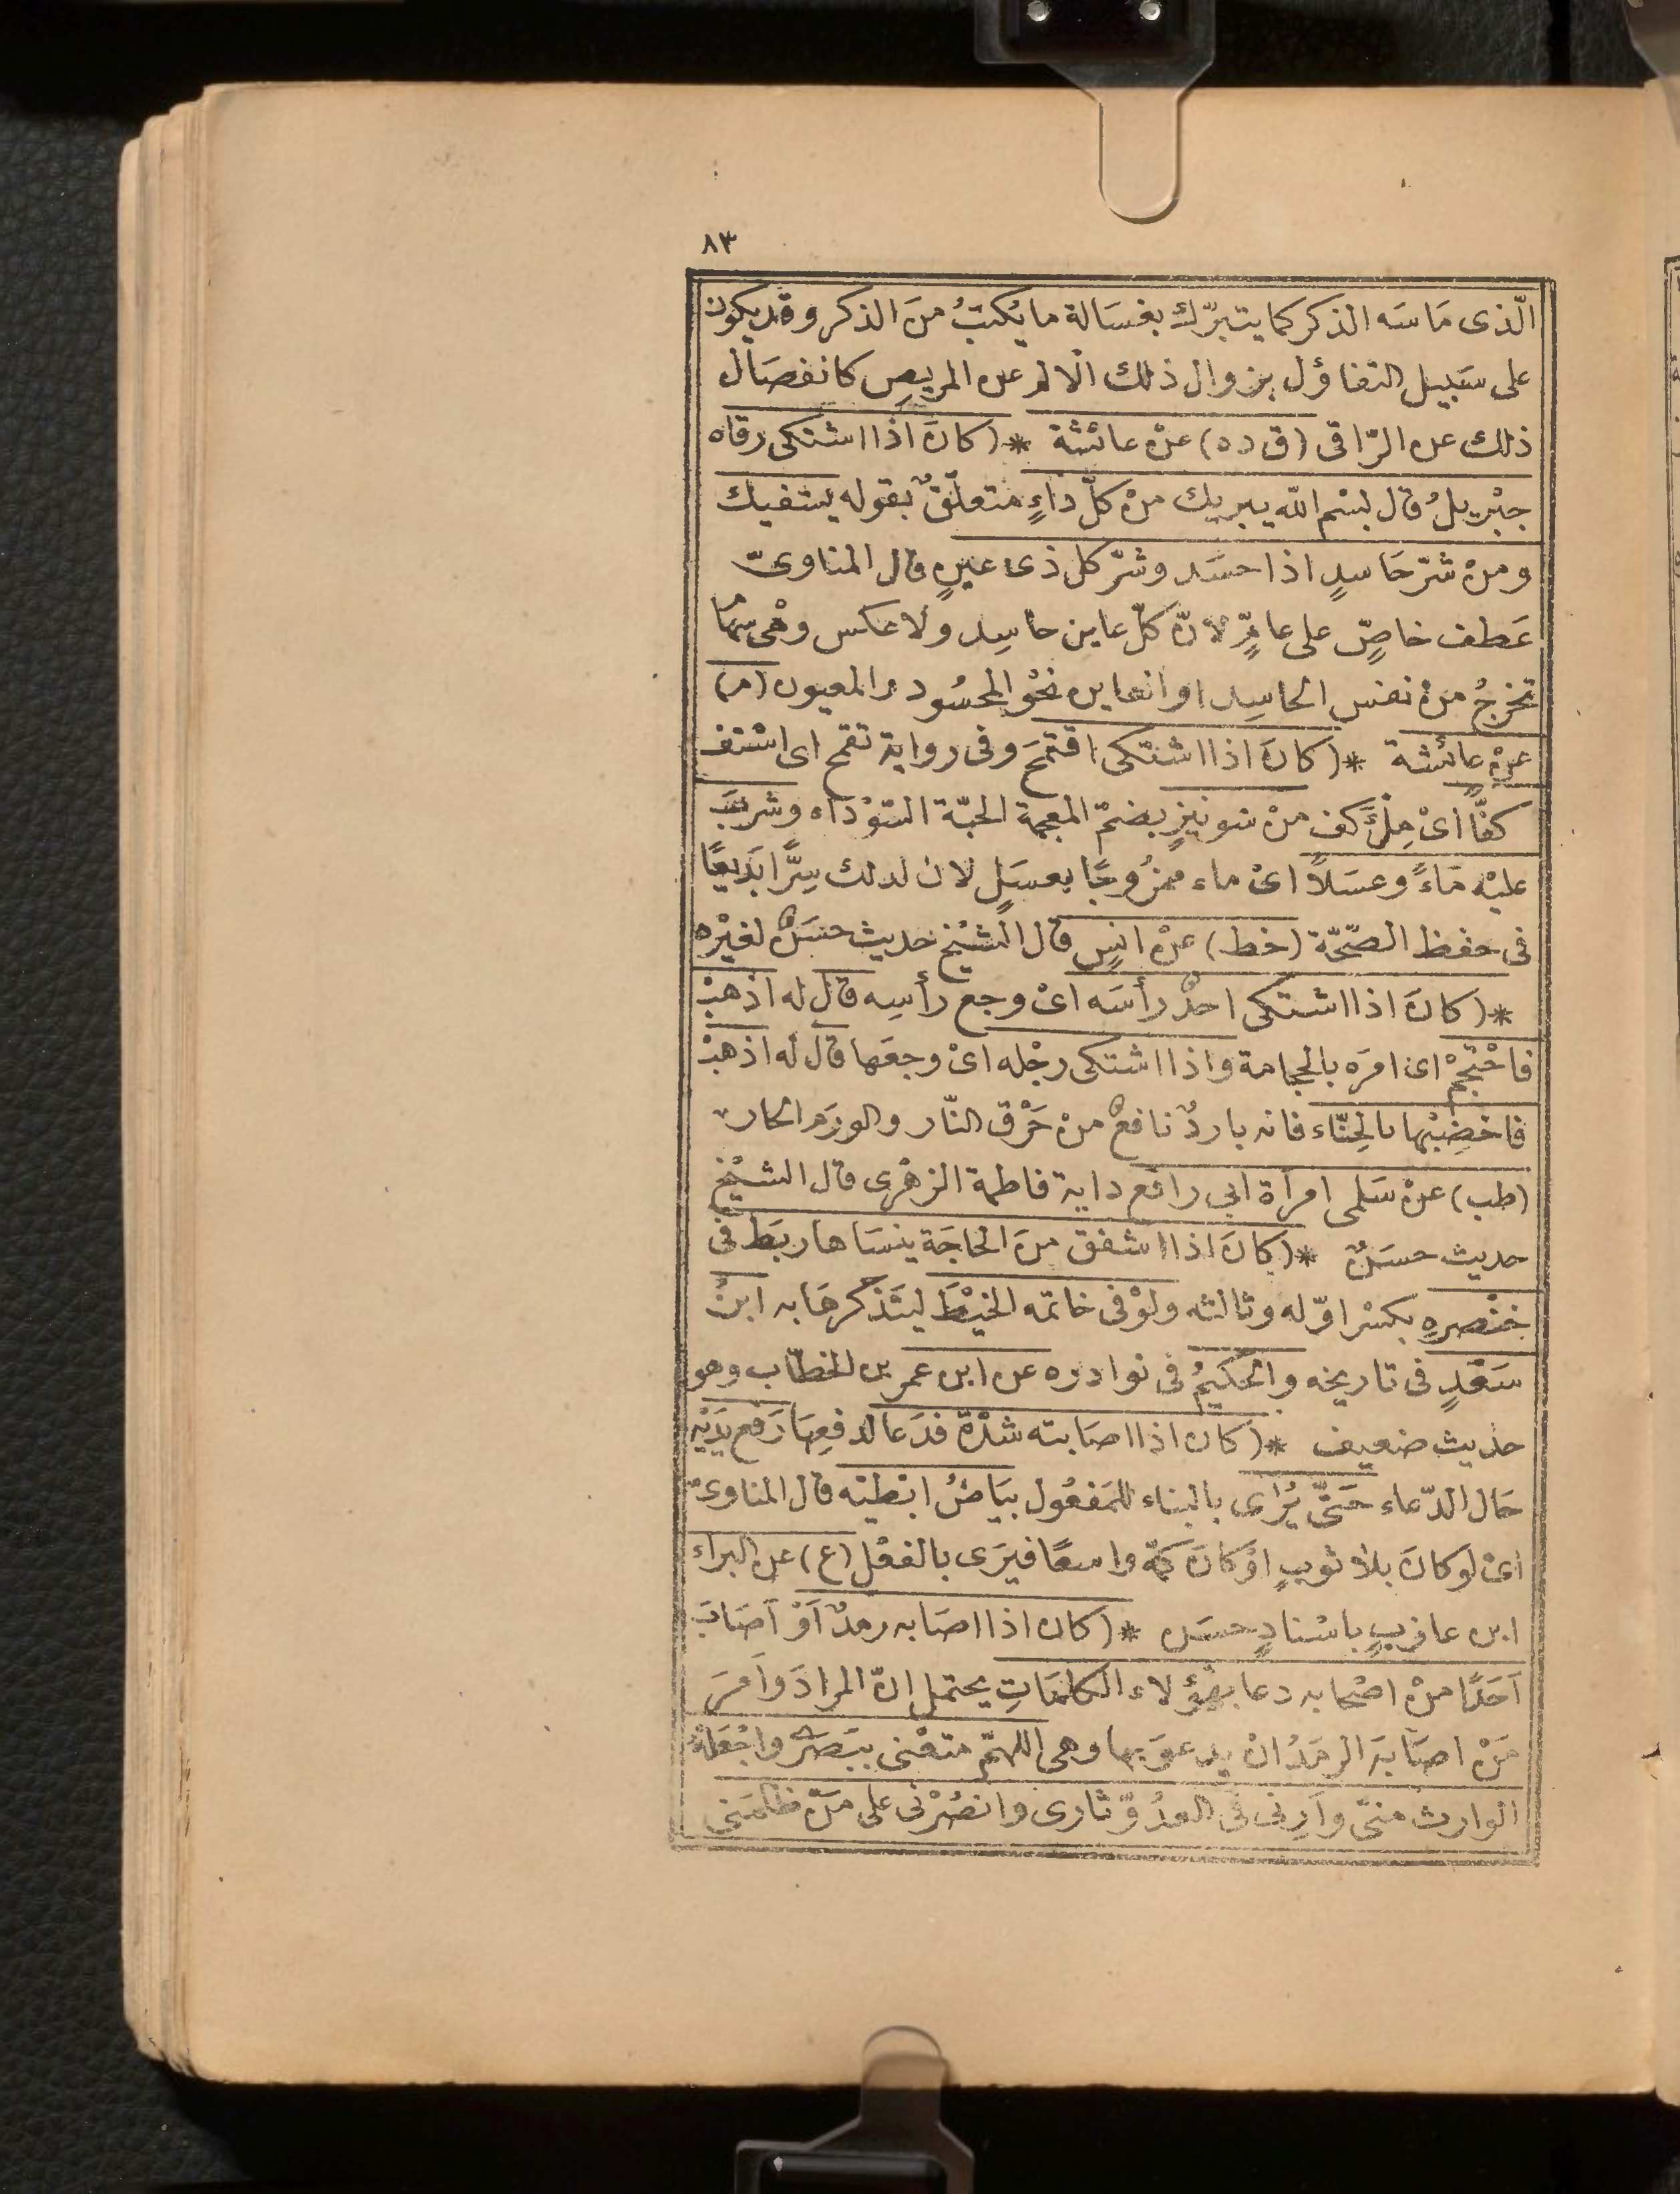 ٨٣
الّذى مَاسَه الذكر كما يتبرّك بغسَالة ما يُكتبُ منَ الذكر وقد يكون
على سَبيل التفاؤل بزوال ذلك الالم عن المريض كانفصَال
ذلك عن الرّاقى (ق ده) عنْ عائشة * (كانَ اذا اشتكى رقاه
جبْريلُ قال بسْم الله يبريك منْ كلّ داءٍ متعلّقٌ بقوله يشفيك
ومنْ شرّ حَاسدٍ اذا حسَد وشرّ كل ذى عينٍ قال المناوىّ
عَطف خاصّ على عامٍّ لانّ كلّ عاين حاسِد ولا عكس وهْى سهَام
تخرجُ منْ نفس الحاسِد او العاين نحْو المحسُود والمعيون (م)
عنْ عائشة * (كانَ اذا اشتكى اقتمحَ وفى رواية تقمح اى اشتف
كفًّا اىْ مِلْءَ كف منْ شونيزٍ بضمّ المعجمة الحبّة السّوْداء وشربَ
عليْه مَاءً وعسَلاً اىْ ماء ممزُوجًا بعسَلٍ لان لذلك سِرًّا بَديعًا
فى حفظ الصّحّة (خط) عنْ انسٍ قال الشيْخ حديث حسَنٌ لغيْره
* (كانَ اذا اشتكى احدٌ رأسَه اىْ وجع رأسِه قال له اذهبْ
فاحْتجمْ اى امرَه بالحجامة واذا اشتكى رجْله اىْ وجعَها قال له اذهبْ
فاخضِبْها بالحِنّاء فانه باردٌ نافعٌ منْ حَرْق النّار والورَم الحار
(طب) عنْ سَلمى امرأة ابى رافع داية فاطمة الزهْرى قال الشيْخ
حديث حسَنٌ * (كانَ اذا اشفق منَ الحاجَة ينسَاها ربَط فى
خنْصرهِ بكسْر اوّله وثالثه ولوْ فى خاتمه الخيْطَ ليتَذكرهَا به ابنُ
سَعْدٍ فى تاريخه والحكيمُ فى نوادره عن ابن عمر بن الخطّاب وهو
حديث ضعيف * (كان اذا اصَابته شدّةٌ فدَعا لدفعِهَا رَفع يَدَيْه
حَال الدّعاء حَتّى يُرَاى بالبناء للمَفعُول بيَاضُ ابطيْه قال المناوىّ
اىْ لوكانَ بلا ثوبٍ اوْ كانَ كمّه واسعًا فيرَى بالفعْل (ع) عن البراء
ابن عازبٍ باسْنادٍ حسَن * (كان اذا اصَابه رمدٌ اَوْ اَصَابَ
اَحَدًا منْ اصْحابه دعا بهَؤلاء الكلمَاتِ يحتمل انّ المرادَ واَمرَ
مَنْ اصَابَه الرمَدُ انْ يدعوَ بها وهى اللهمّ متعْنى ببَصَرى واجْعَلهُ
الوارث منىّ واَرِنى فى العدُوّ ثارى وانصُرْنى على مَنْ ظلمَنى